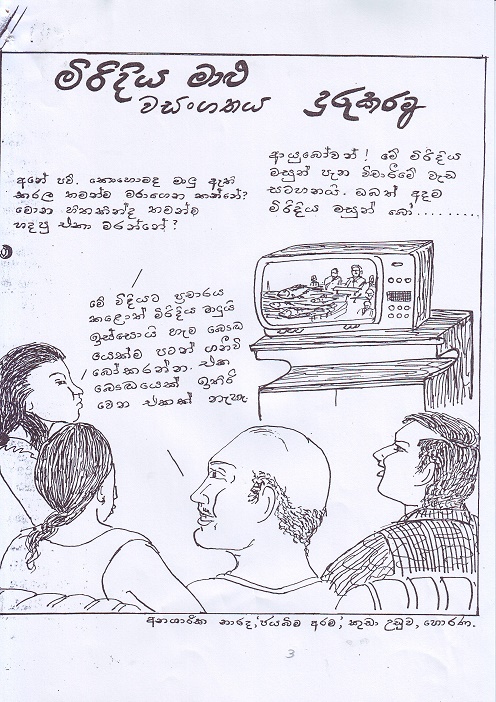 මිරිදිය මාළු
වසංගතය දුරුකරමු
අනේ පව්. කොහොමද මාළු ඇති
කරල තමන්ම මරාගෙන කන්නේ?
මොන හිතකින්ද තමන්ම
හදපු ඒකා මරන්නේ?
ආයුබෝවන්! මේ මිරිදිය
මසුන් පැන විචාරීමේ වැඩ
සටහනයි. ඔබත් අදම
මිරිදිය මසුන් බෝ..........
මේ විදියට ප්‍රචාරය
කළොත් මිරිදිය මාළුයි
ඉස්සොයි හැම බෞද්ධ
යෙක්ම පටන් ගනීවි
බෝකරන්න. එක
බෞද්ධයෙක් ඉතිරි
වෙන එකක් නැහැ.
අනගාරික නාරද, 'ජයබිම අරම', කුඩා උඩුව, හොරණ.
3